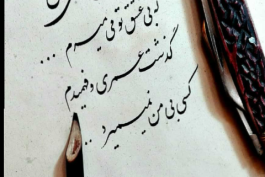 که بی عشق تو می میرم ...
گذشت عمری و فهمیدم
کسی بی من نمیمیرد ..